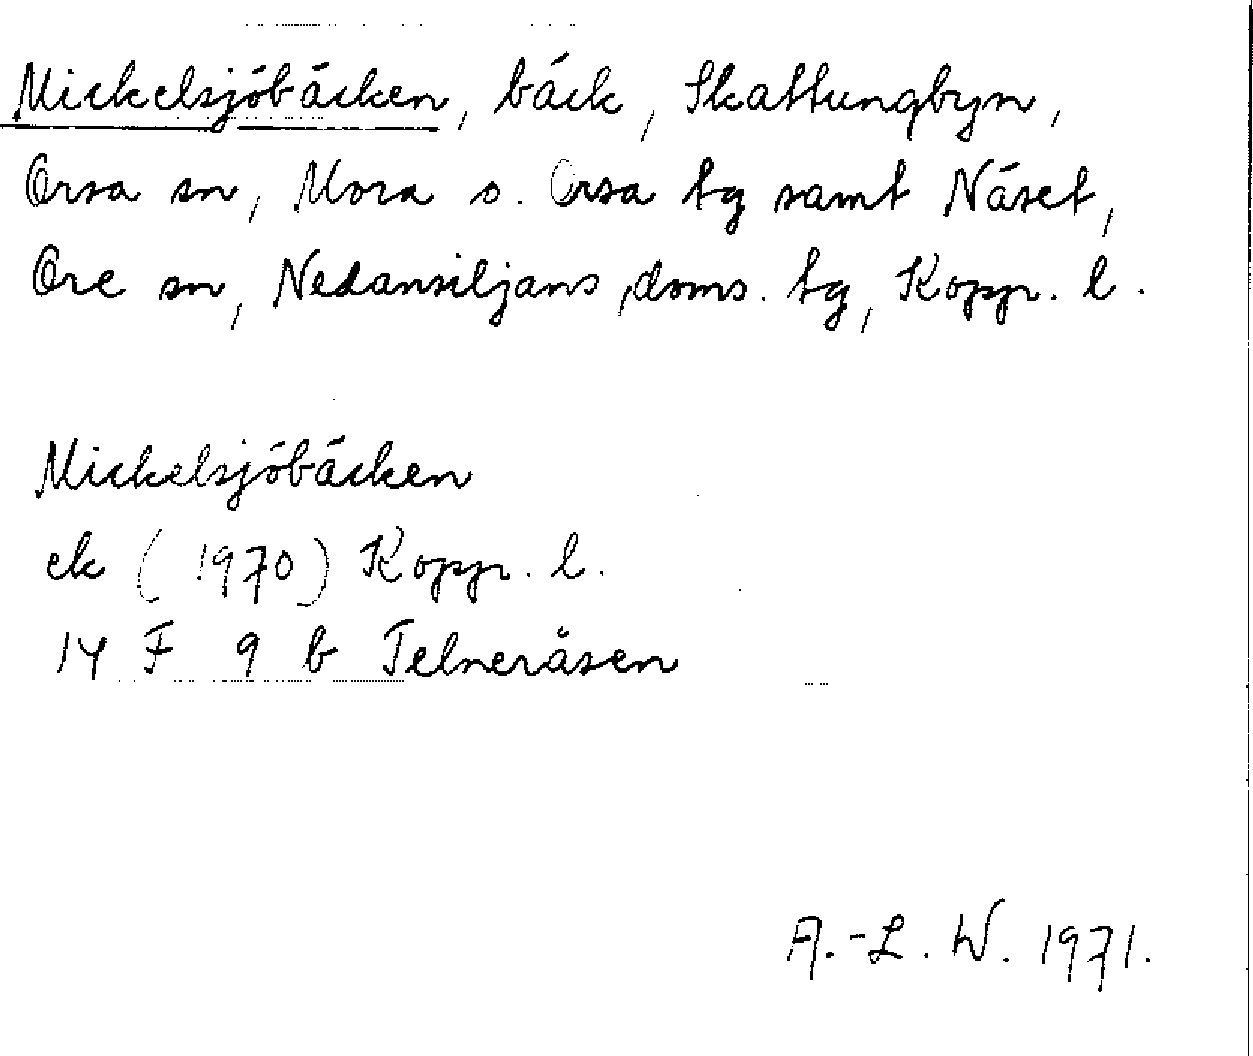 Mickelsjöbäcken, bäck, Skattungbyn,
Orsa sn, Mora o. Orsa tg samt Näset,
Ore sn, Nedansiljans doms. tg, Kopp. l.
Mickelsjöbäcken
ek (1970) Kopp. l.
14 F 9 b Telneråsen
A.-L. W. 1971.